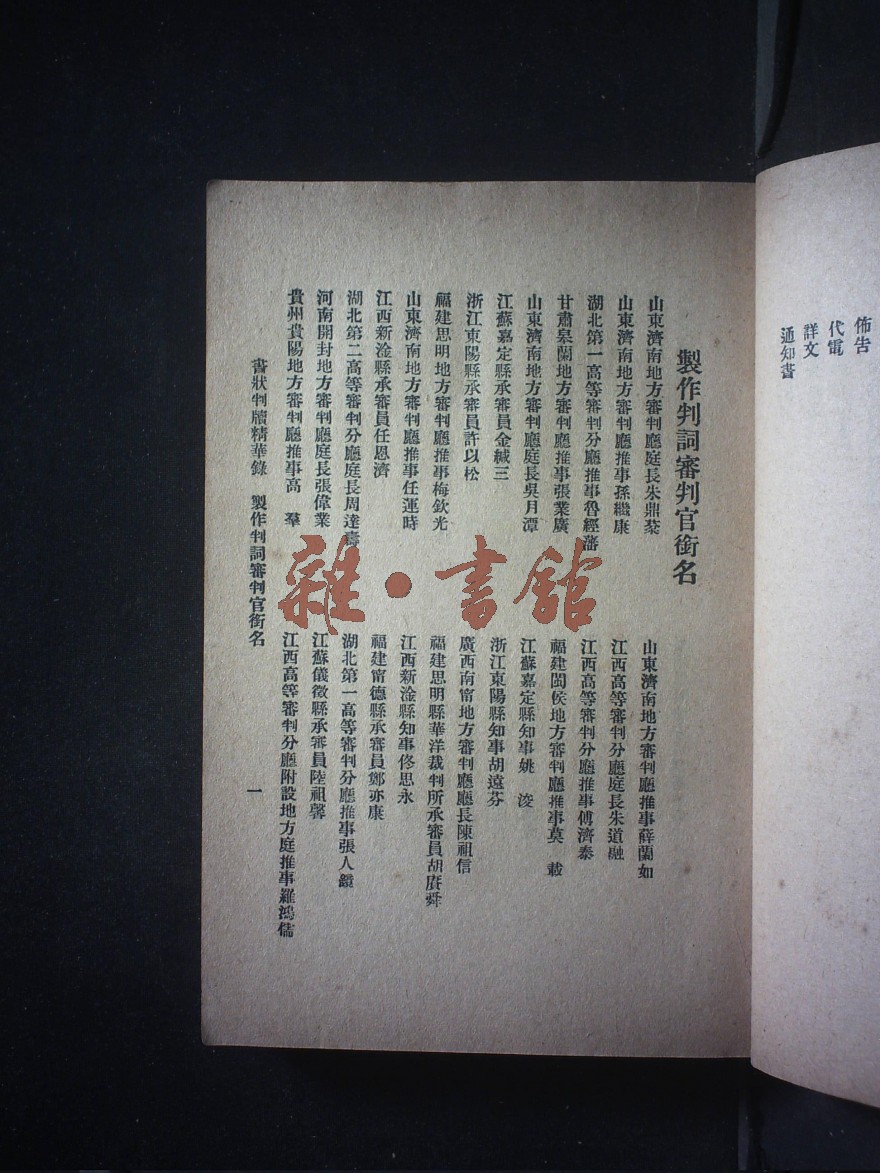 佈告
代電
詳文
通知書
製作判詞審判官銜名
山東濟南地方審判廳庭長朱鼎棻
山東濟南地方審判廳推事薛蘭如
山東濟南地方審判廳推事孫繼康
江西高等審判分廳庭長朱道融
湖北第一高等審判分廳推事魯經藩
江西高等審判分廳推事傅濟泰
甘肅皋蘭地方審判廳推事張業廣
福建閩侯地方審判廳推事莫　載
山東濟南地方審判廳庭長吳月潭
江蘇嘉定縣知事姚　浚
江蘇嘉定縣承審員金緘三
浙江東陽縣知事胡遠芬
浙江東陽縣承審員許以松
廣西南甯地方審判廳廳長陳祖信
福建思明地方審判廳推事梅欽光
福建思明縣華洋裁判所承審員胡賡舜
山東濟南地方審判廳推事任運時
江西新淦縣知事修思永
江西新淦縣承審員任恩濟
福建甯德縣承審員鄭亦康
湖北第二高等審判分廳庭長周達壽
湖北第一高等審判分廳推事張人鏡
河南開封地方審判廳庭長張偉業
江蘇儀徵縣承審員陸祖馨
貴州貴陽地方審判廳推事高　羣
江西高等審判分廳附設地方庭推事羅鴻儒
書狀判牘精華錄　製作判詞審判官銜名　一
雜·書館